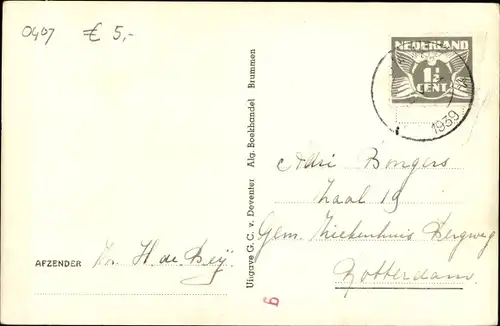 0407 € 5,-
NEDERLAND
1½
CENT
1939
Uitgave G. C. v. Deventer Alg. Boekhandel Brummen
Adri Bongers
Zaal 19
Gem. Ziekenhuis Bergweg
Rotterdam.
AFZENDER H. de Beij.
6